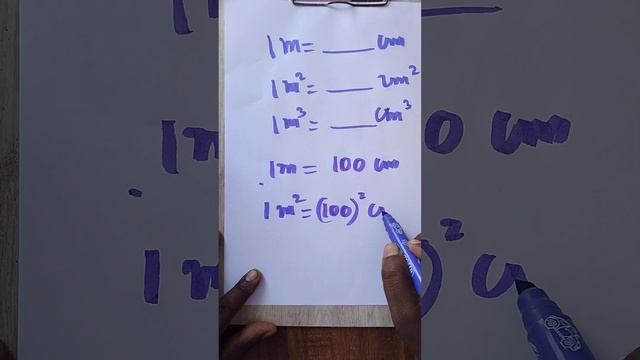 1m = ___ cm
1m² = ___ cm²
1m³ = ___ cm³
1m = 100 cm
1m² = (100)² c